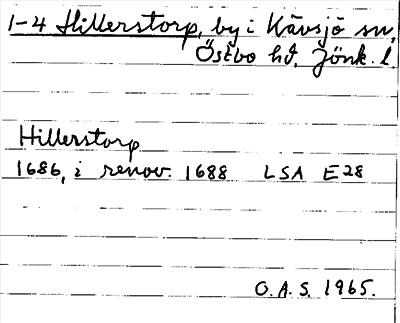 1-4 Hillerstorp, by i Kävsjö sn,
Östbo hd. Jönk. l.
Hillerstorp
1686, i renov. 1688 LSA E28
O.A.S. 1965.